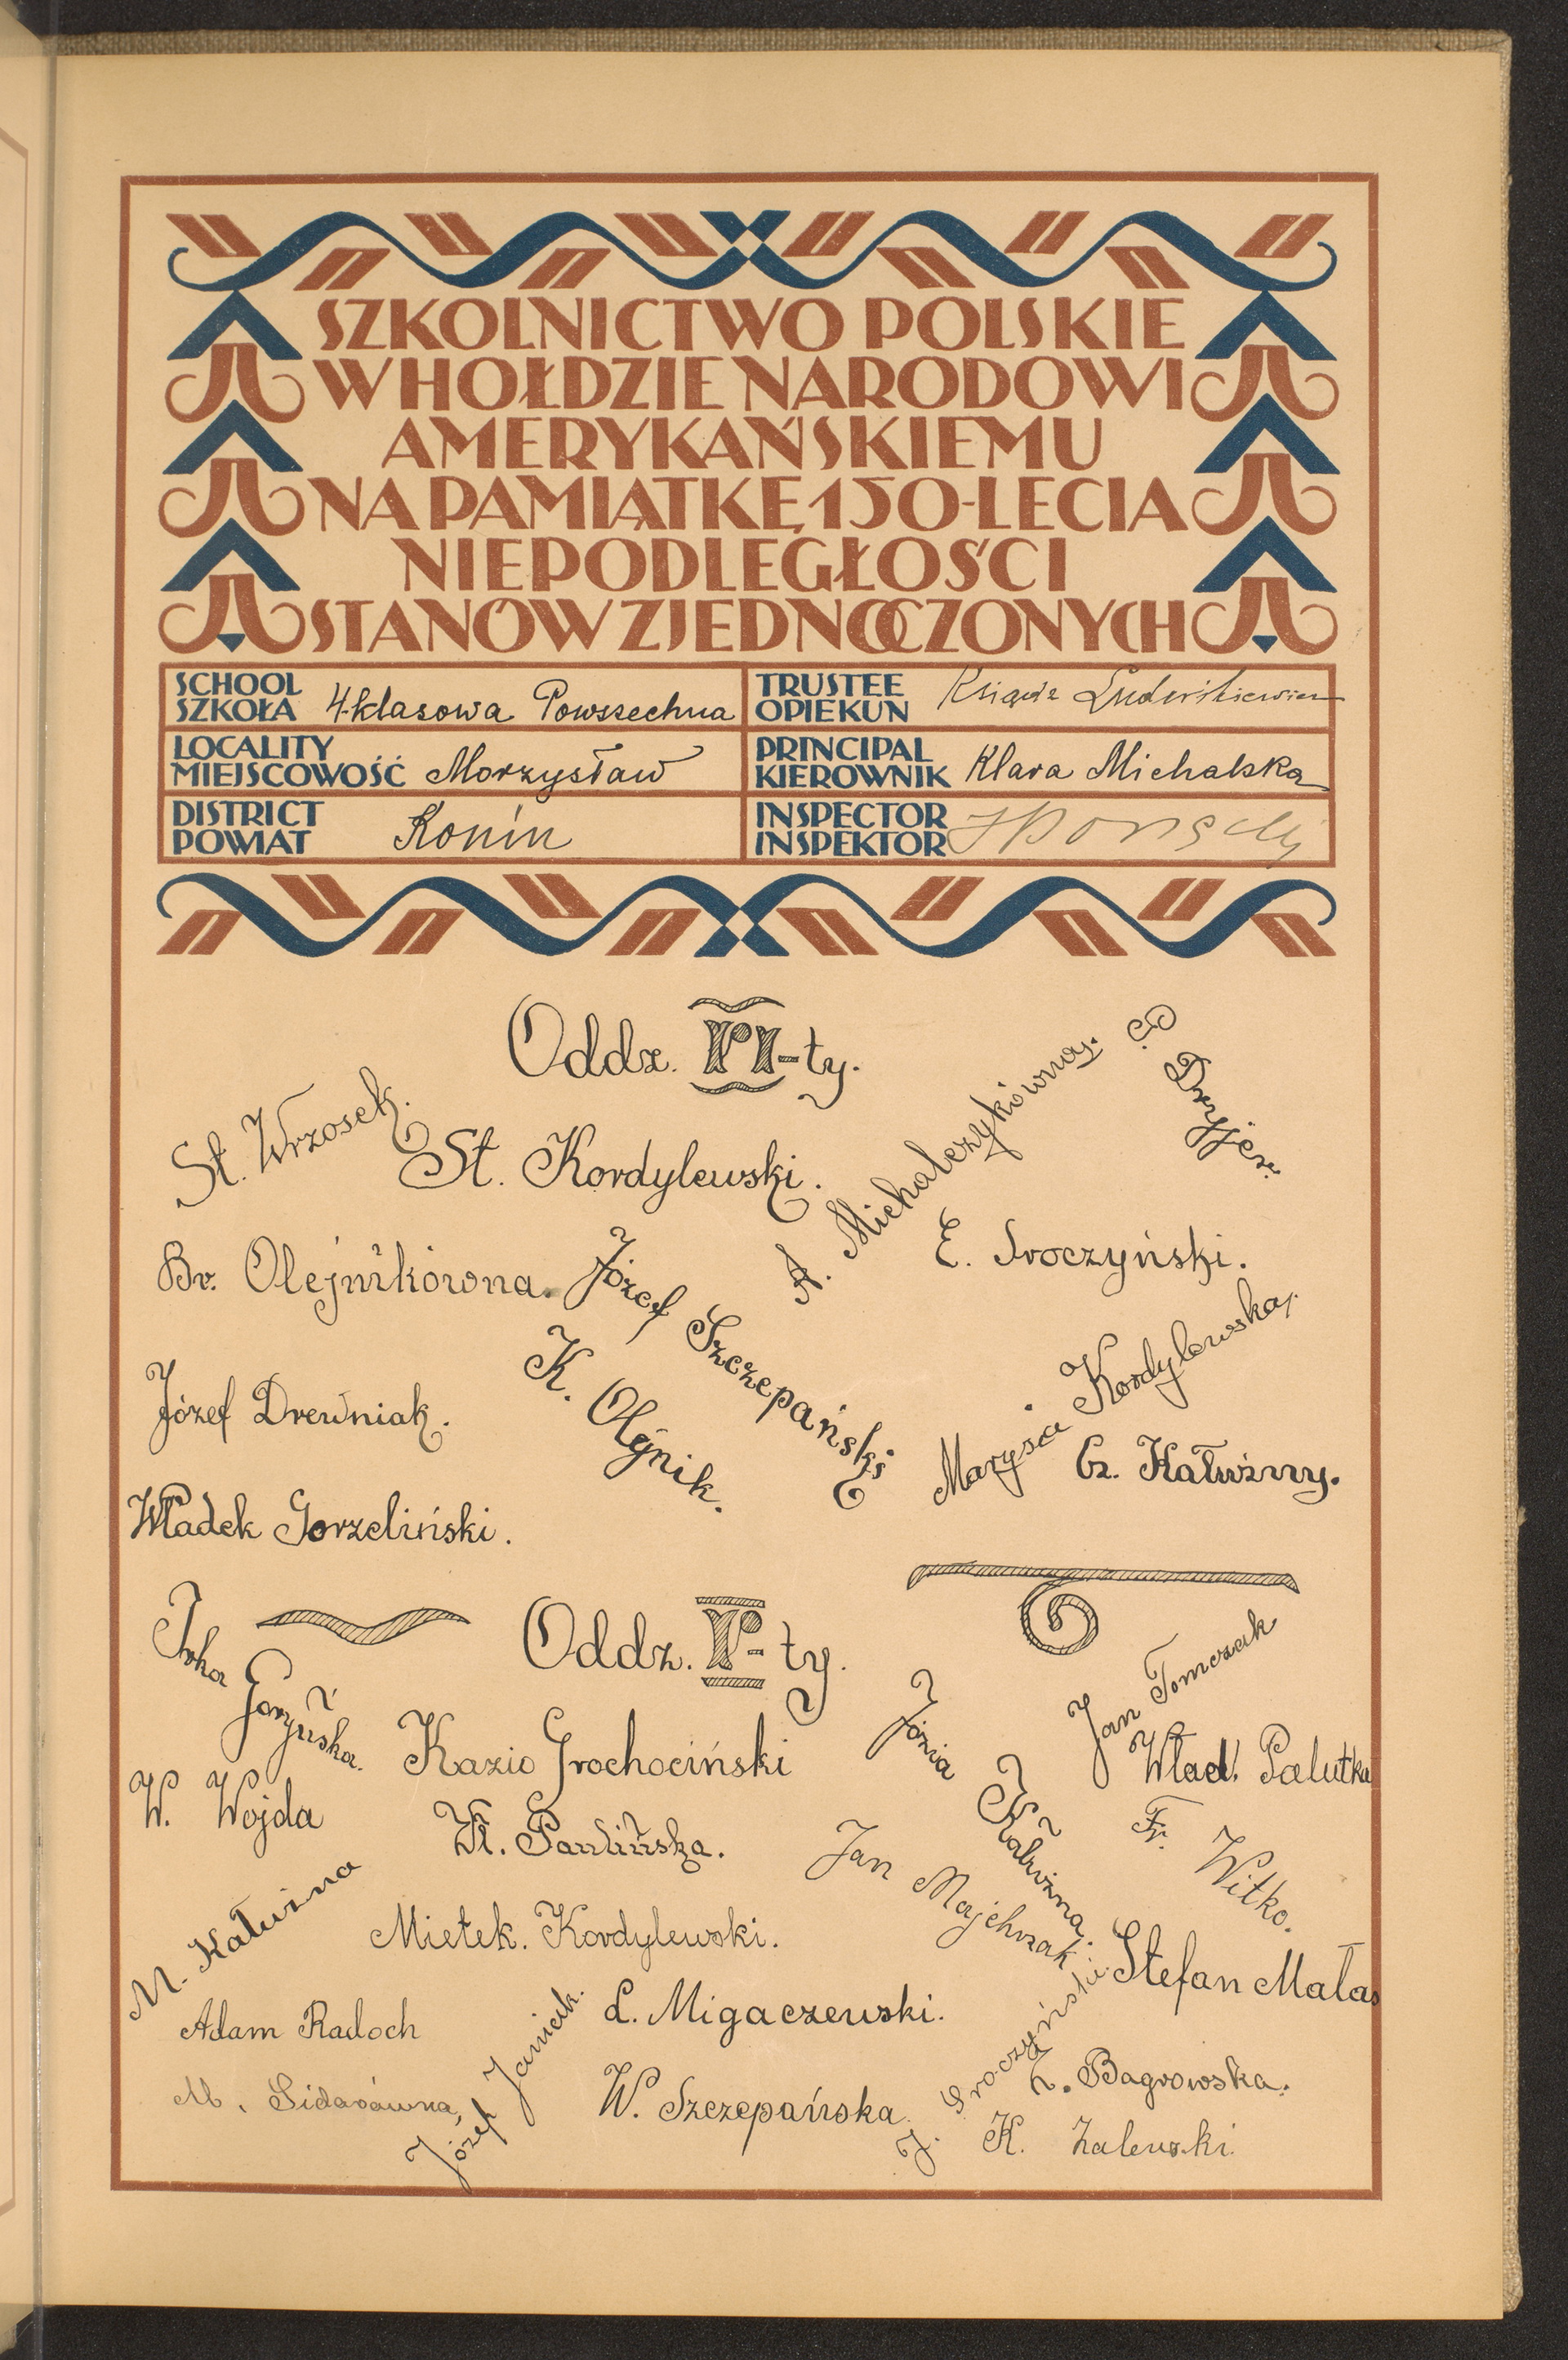 SZKOLNICTWO POLSKIE
W HOŁDZIE NARODOWI
AMERYKAŃSKIEMU
NA PAMIĄTKĘ 150-LECIA
NIEPODLEGŁOŚCI
STANÓW ZJEDNOCZONYCH
SCHOOL
SZKOŁA 4-klasowa Powszechna
TRUSTEE
OPIEKUN Ksiądz
LOCALITY
MIEJSCOWOŚĆ Morzysław
PRINCIPAL
KIEROWNIK Klara Michalska
DISTRICT
POWIAT Konin
INSPECTOR
INSPEKTOR
Oddz. VI-ty.
St. Wrzosek.
St. Kordylewski.
A. Michalczykówna.
Br. Olejnikówna.
Józef Szczepański
E. Sroczyński.
K. Olejnik.
Józef Drewniak.
Marysia Kordylewska.
Cz. Kałużny.
Władek Gorzeliński.
Oddz. V-ty.
Jan Tomczak
Kazio Grochociński
Józia Kałużna.
Wład. Palutka
W. Wojda
Wł. Paulińska.
Jan Majchrzak
Fr. Witko.
M. Kałużna
Mietek. Kordylewski.
Stefan Malas
Adam Radoch
Józef Janicik.
L. Migaczewski.
J. Sroczyński.
Z. Bagrowska.
M. Sidarówna,
W. Szczepańska.
K. Zalewski.